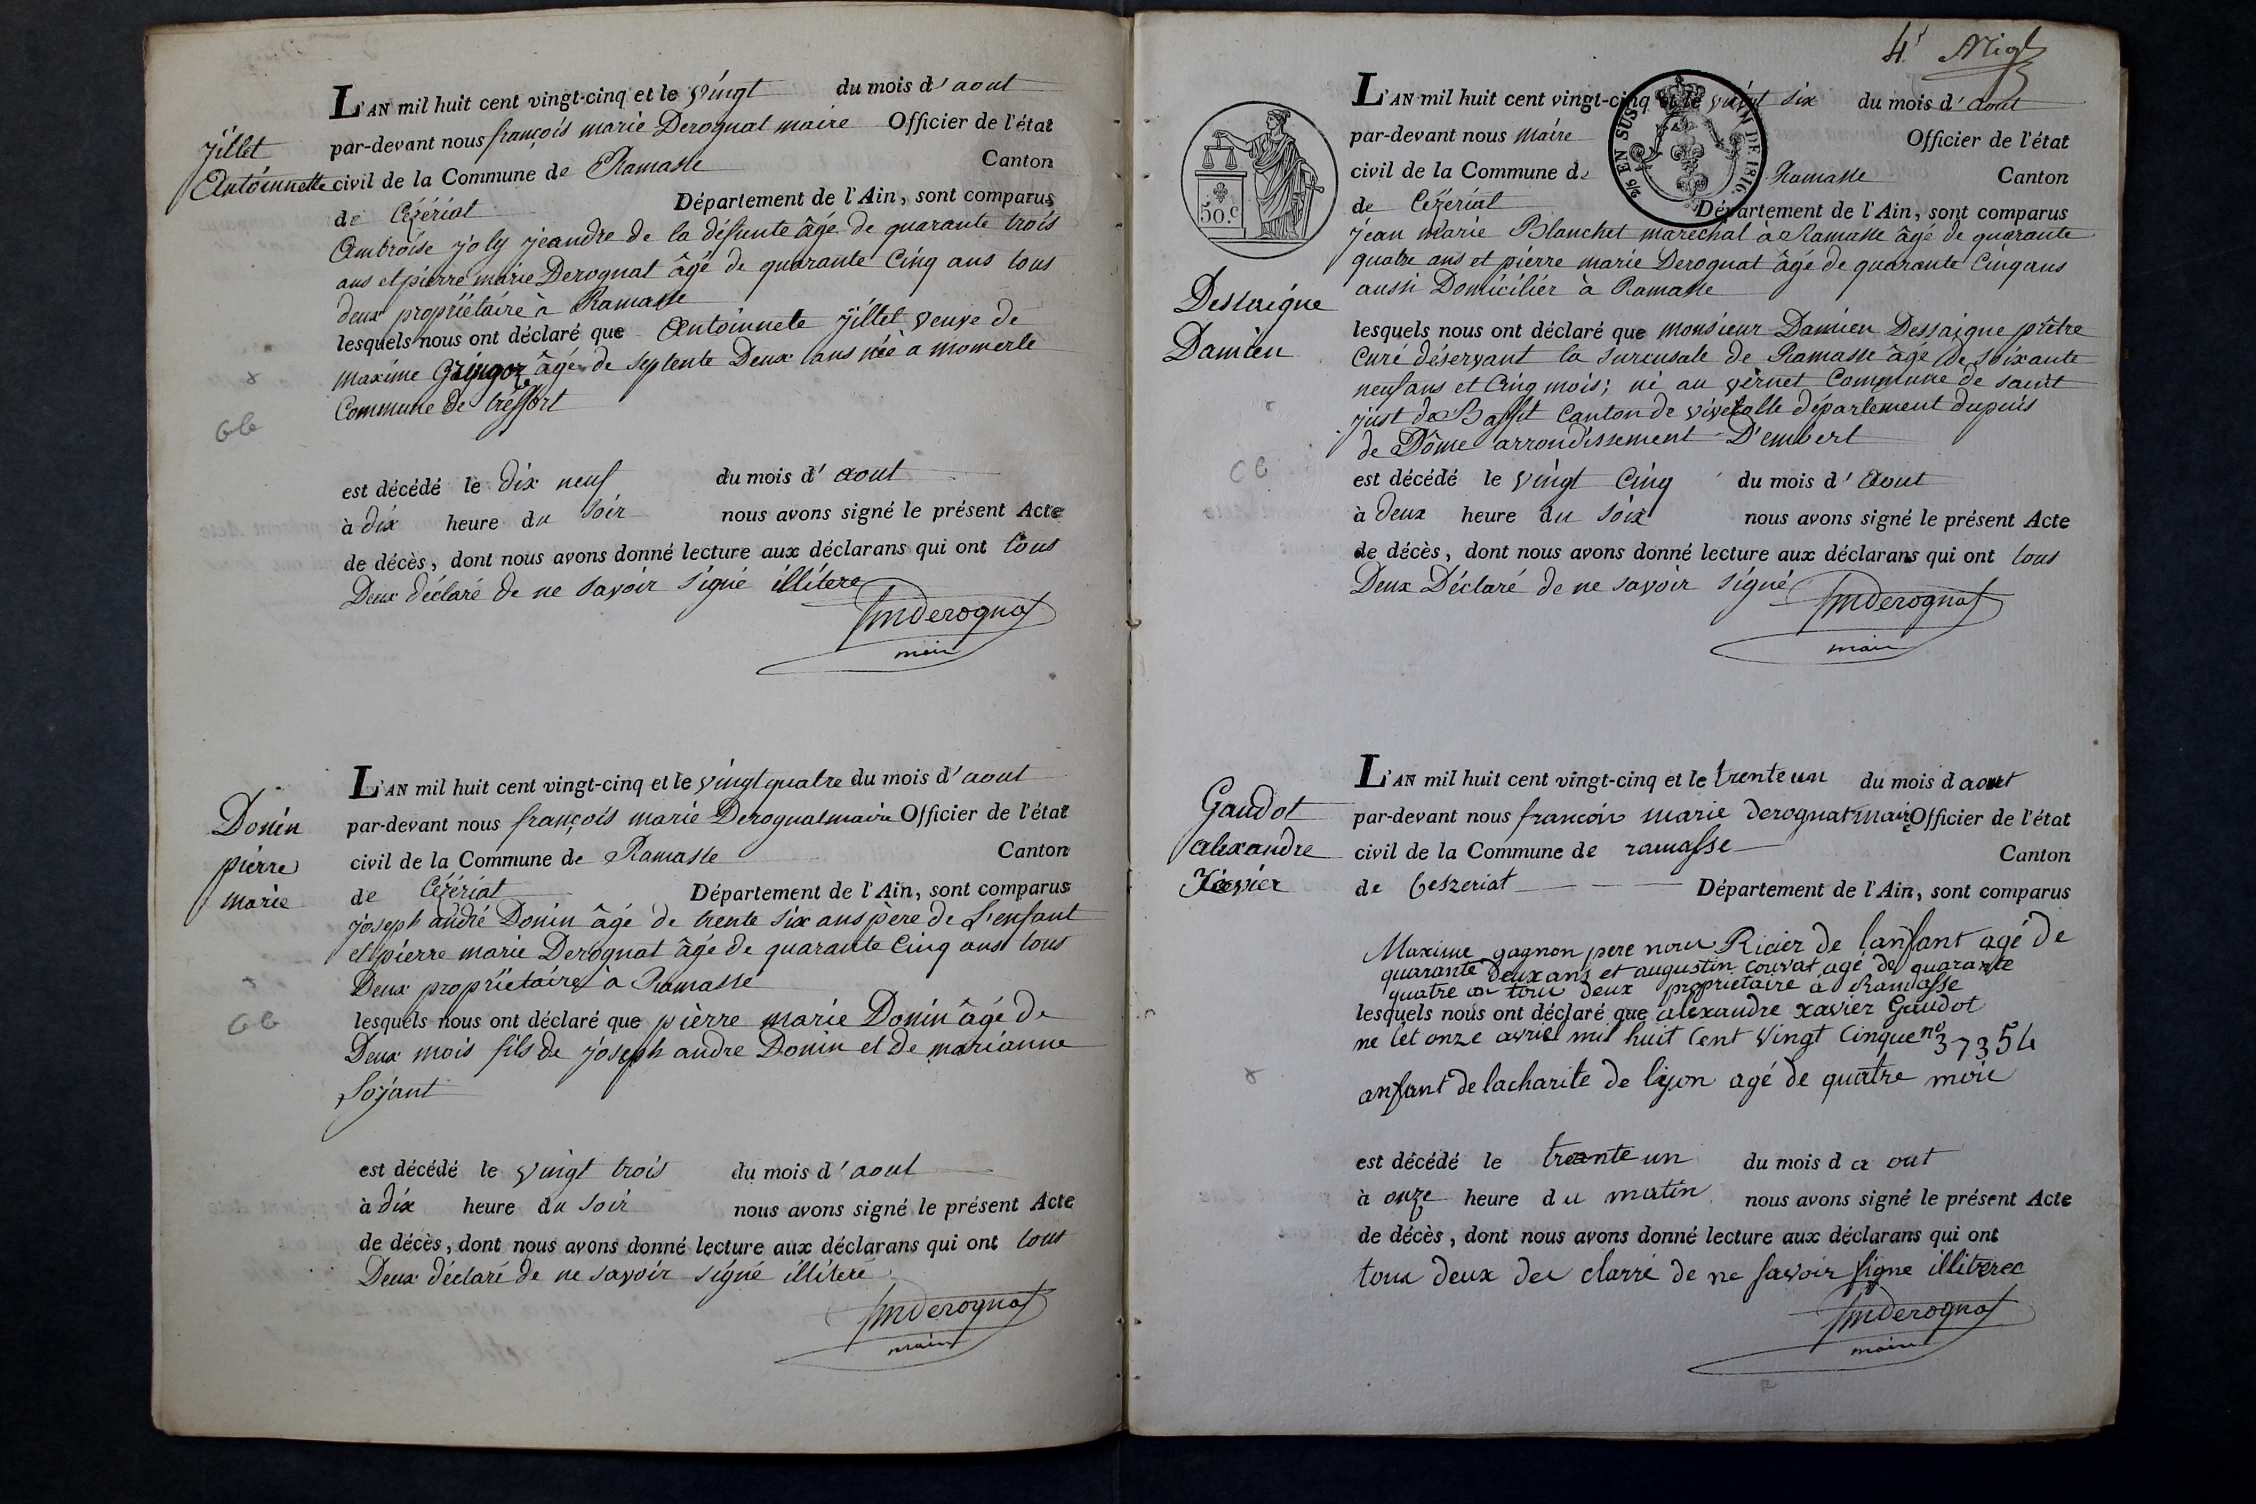 L'AN mil huit cent vingt-cinq et le vingt du mois d' aout
par-devant nous françois marie Derognat maire Officier de l'état
jillet
Antoinnette
civil de la Commune de Ramasse Canton
de Cézériat Département de l'Ain, sont comparus
Ambroise joly jeandre de la défunte âgé de quarante trois
ans et pierre marie Derognat âgé de quarante Cinq ans tous
deux propriétaire à Ramasse
lesquels nous ont déclaré que Antoinnete jillet veuve de
maxime âgé de septente Deux ans née a momerle
Commune de tréffort
est décédé le dix neuf du mois d' aout
à dix heure du soir nous avons signé le présent Acte
de décès, dont nous avons donné lecture aux déclarans qui ont tous
Deux déclaré de ne savoir signé illitere
fmderognat
mair
Donin
pierre
marie
L'AN mil huit cent vingt-cinq et le vingt quatre du mois d' aout
par-devant nous françois marie Derognat maire Officier de l'état
civil de la Commune de Ramasse Canton
de Cézériat Département de l'Ain, sont comparus
joseph andré Donin âgé de trente six ans père de L'enfant
et pierre marie Derognat âgé de quarante Cinq ans tous
Deux propriétaire à Ramasse
lesquels nous ont déclaré que pierre marie Donin âgé de
Deux mois fils de joseph andre Donin et de marianne
Sojant
est décédé le vingt trois du mois d' aout
à dix heure du soir nous avons signé le présent Acte
de décès, dont nous avons donné lecture aux déclarans qui ont tous
Deux déclaré de ne savoir signé illiteré
fmderognat
mair
4
50.c
EN SUS
DE 1816.
L'AN mil huit cent vingt-cinq et le vingt six du mois d' aout
par-devant nous maire Officier de l'état
civil de la Commune de Ramasse Canton
de Cézériat Département de l'Ain, sont comparus
jean marie Blanchet maréchal à Ramasse âgé de quarante
quatre ans et pierre marie Derognat âgé de quarante Cinq ans
aussi Domicilier à Ramasse
Dessaigne
Damien
lesquels nous ont déclaré que monsieur Damien Dessaigne prêtre
Curé déservant la surcusale de Ramasse âgé de soixante
neuf ans et Cinq mois; né au vernet Commune de saint
just de Baffit Canton de département dupuis
de Dôme arrondissement D'embert
est décédé le vingt Cinq du mois d' Aout
à deux heure du soix nous avons signé le présent Acte
de décès, dont nous avons donné lecture aux déclarans qui ont tous
Deux Déclaré de ne savoir signé
fmderognat
mair
Gaudot
alexandre
Xavier
L'AN mil huit cent vingt-cinq et le trente un du mois d aout
par-devant nous francois marie derognat maire Officier de l'état
civil de la Commune de ramasse Canton
de Ceszeriat Département de l'Ain, sont comparus
Maxime gagnon pere nou Ricier de lanfant agé de
quarante deux ans et augustin couvat agé de quarante
quatre an tous deux proprietaire a Ramasse
lesquels nous ont déclaré que alexandre xavier Gaudot
ne let onze avriel mil huit Cent Vingt Cinque no 37354
anfant de lacharite de liyon agé de quatre mois
est décédé le treante un du mois d a out
à onze heure du matin nous avons signé le présent Acte
de décès, dont nous avons donné lecture aux déclarans qui ont
tous deux de clarré de ne savoir signe
fmderognat
mair